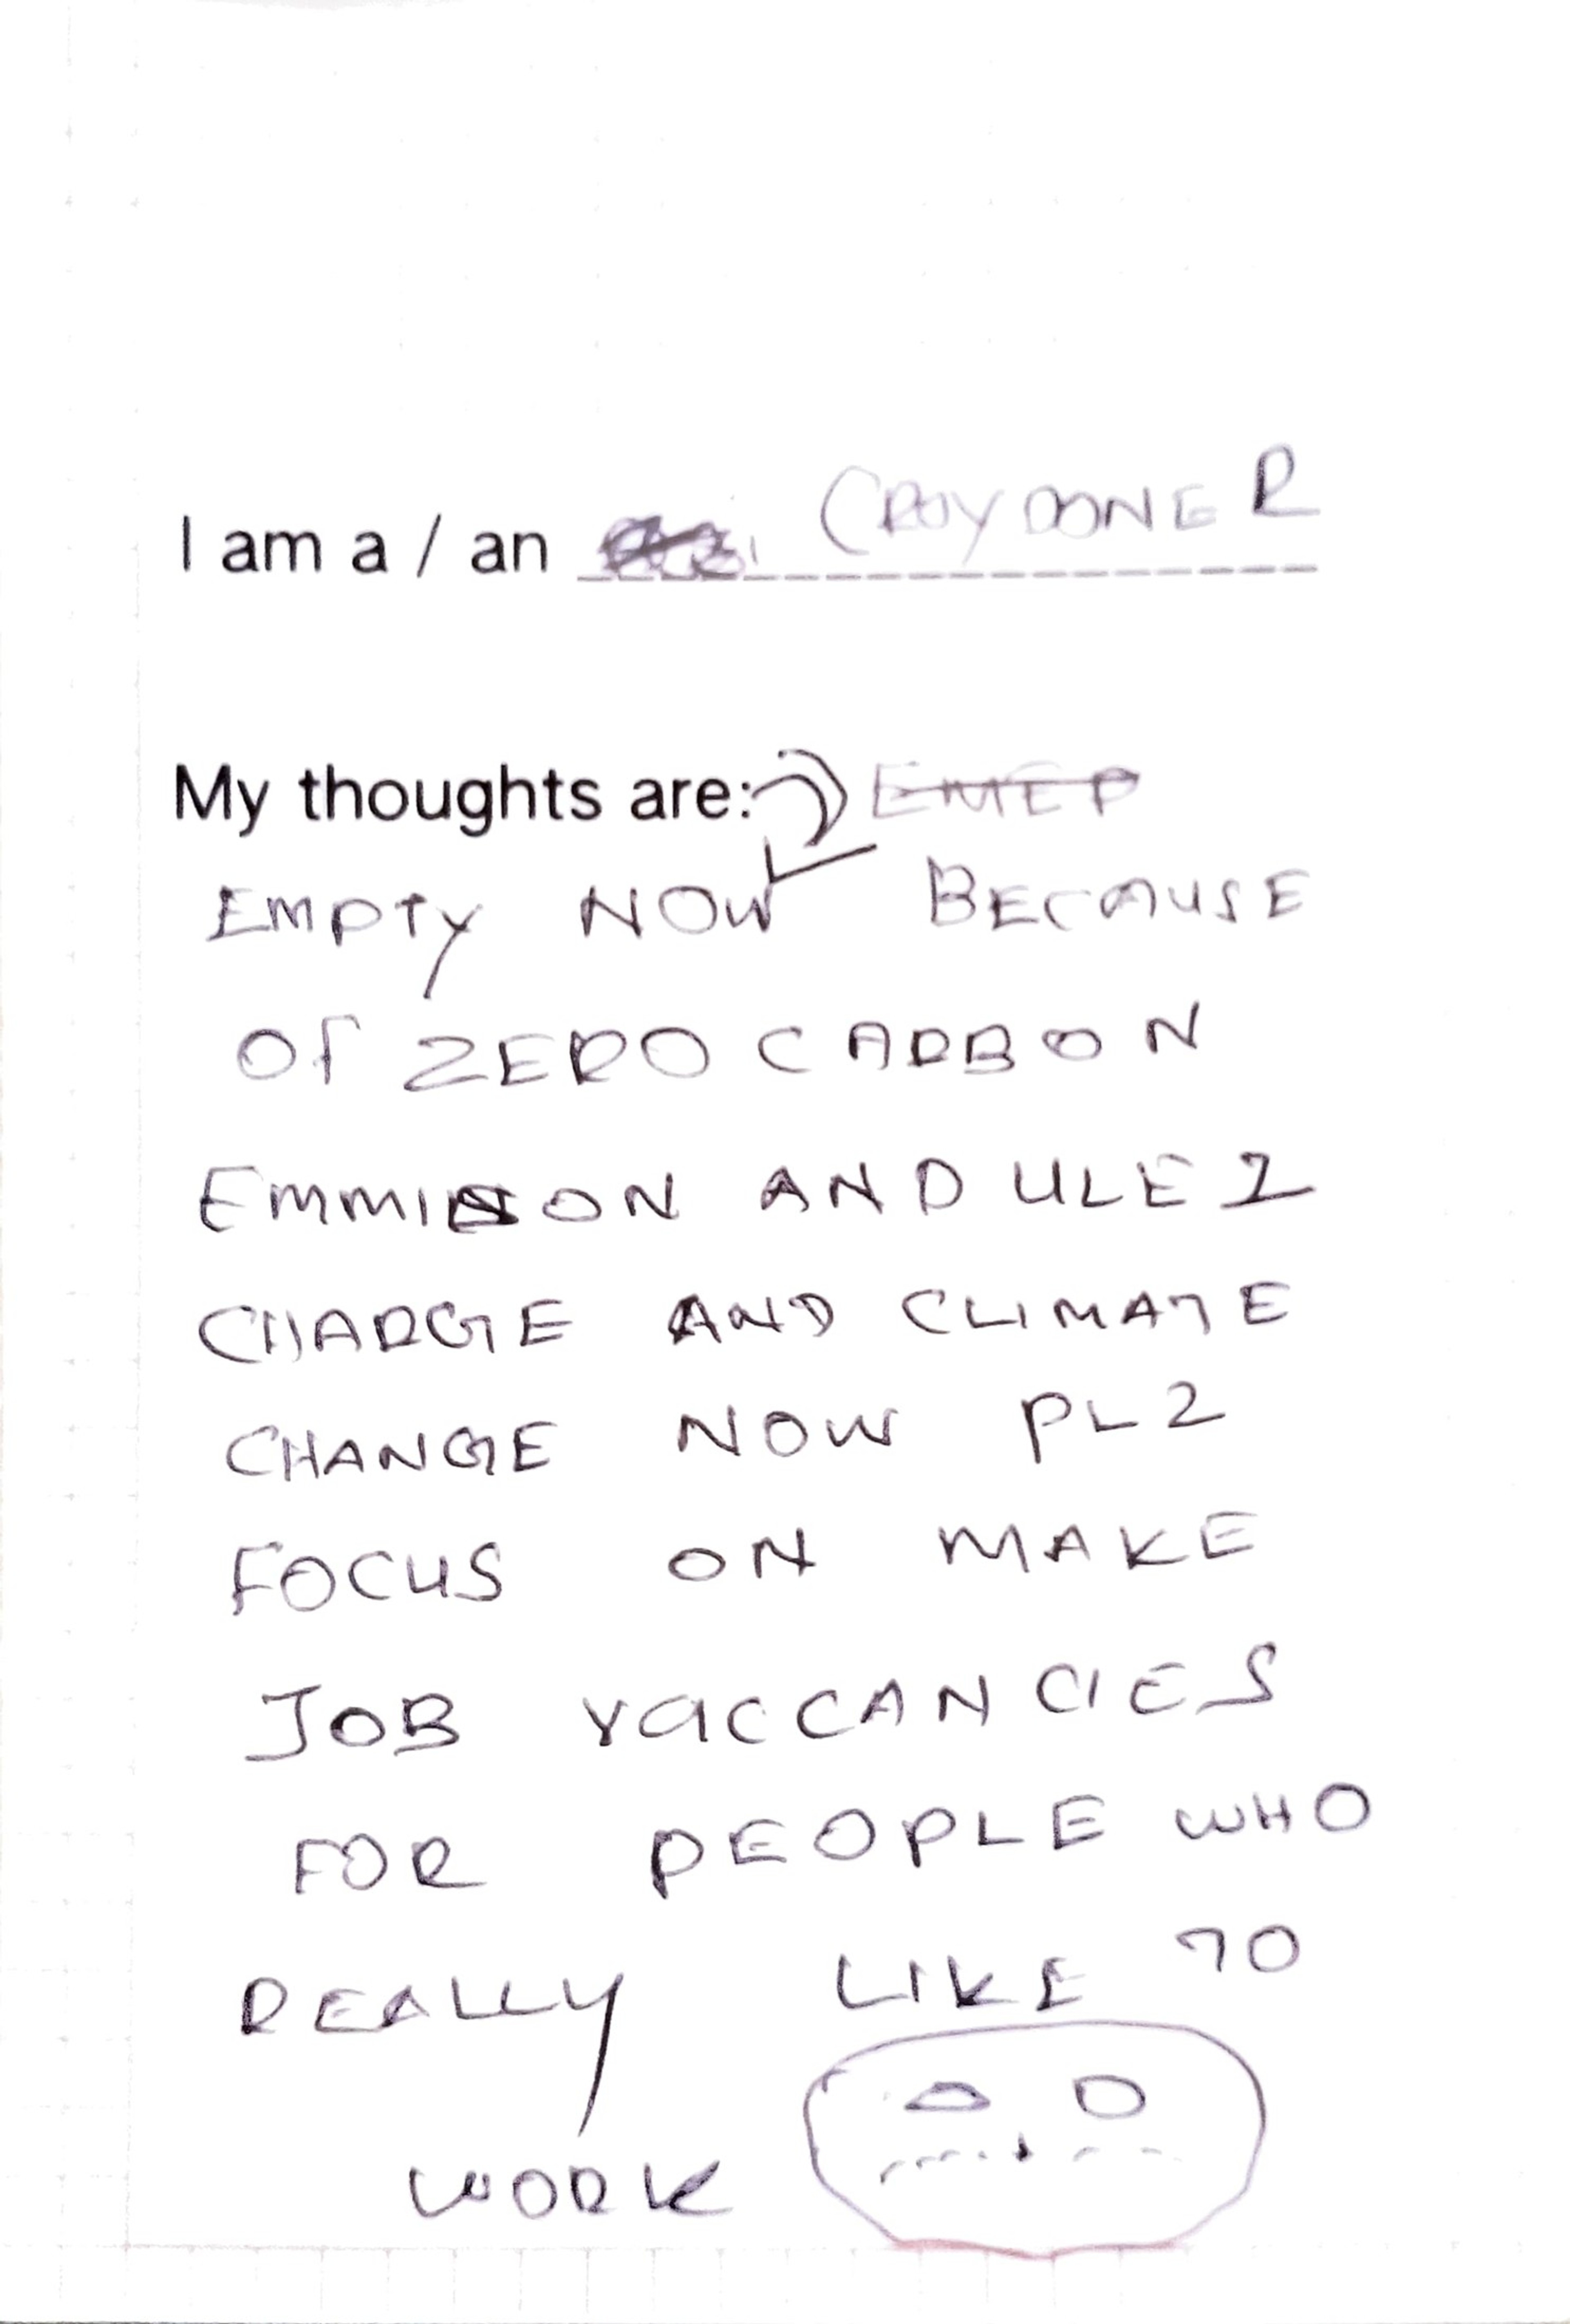 I am a / an CROYDONER
My thoughts are: EMEP
EMPTY NOW BECAUSE
OF ZERO CARBON
EMMISON AND ULEZ
CHARGE AND CLIMATE
CHANGE NOW PLZ
FOCUS ON MAKE
JOB VACCANCIES
FOR PEOPLE WHO
REALLY LIKE TO
WORK